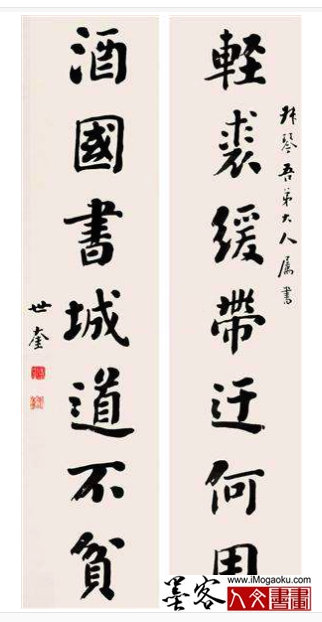 琴吾弟大人属書
軽裘緩帶迂何
酒國書城道不貧
世奎
墨客
www.iMogaoku.com
人文書畫